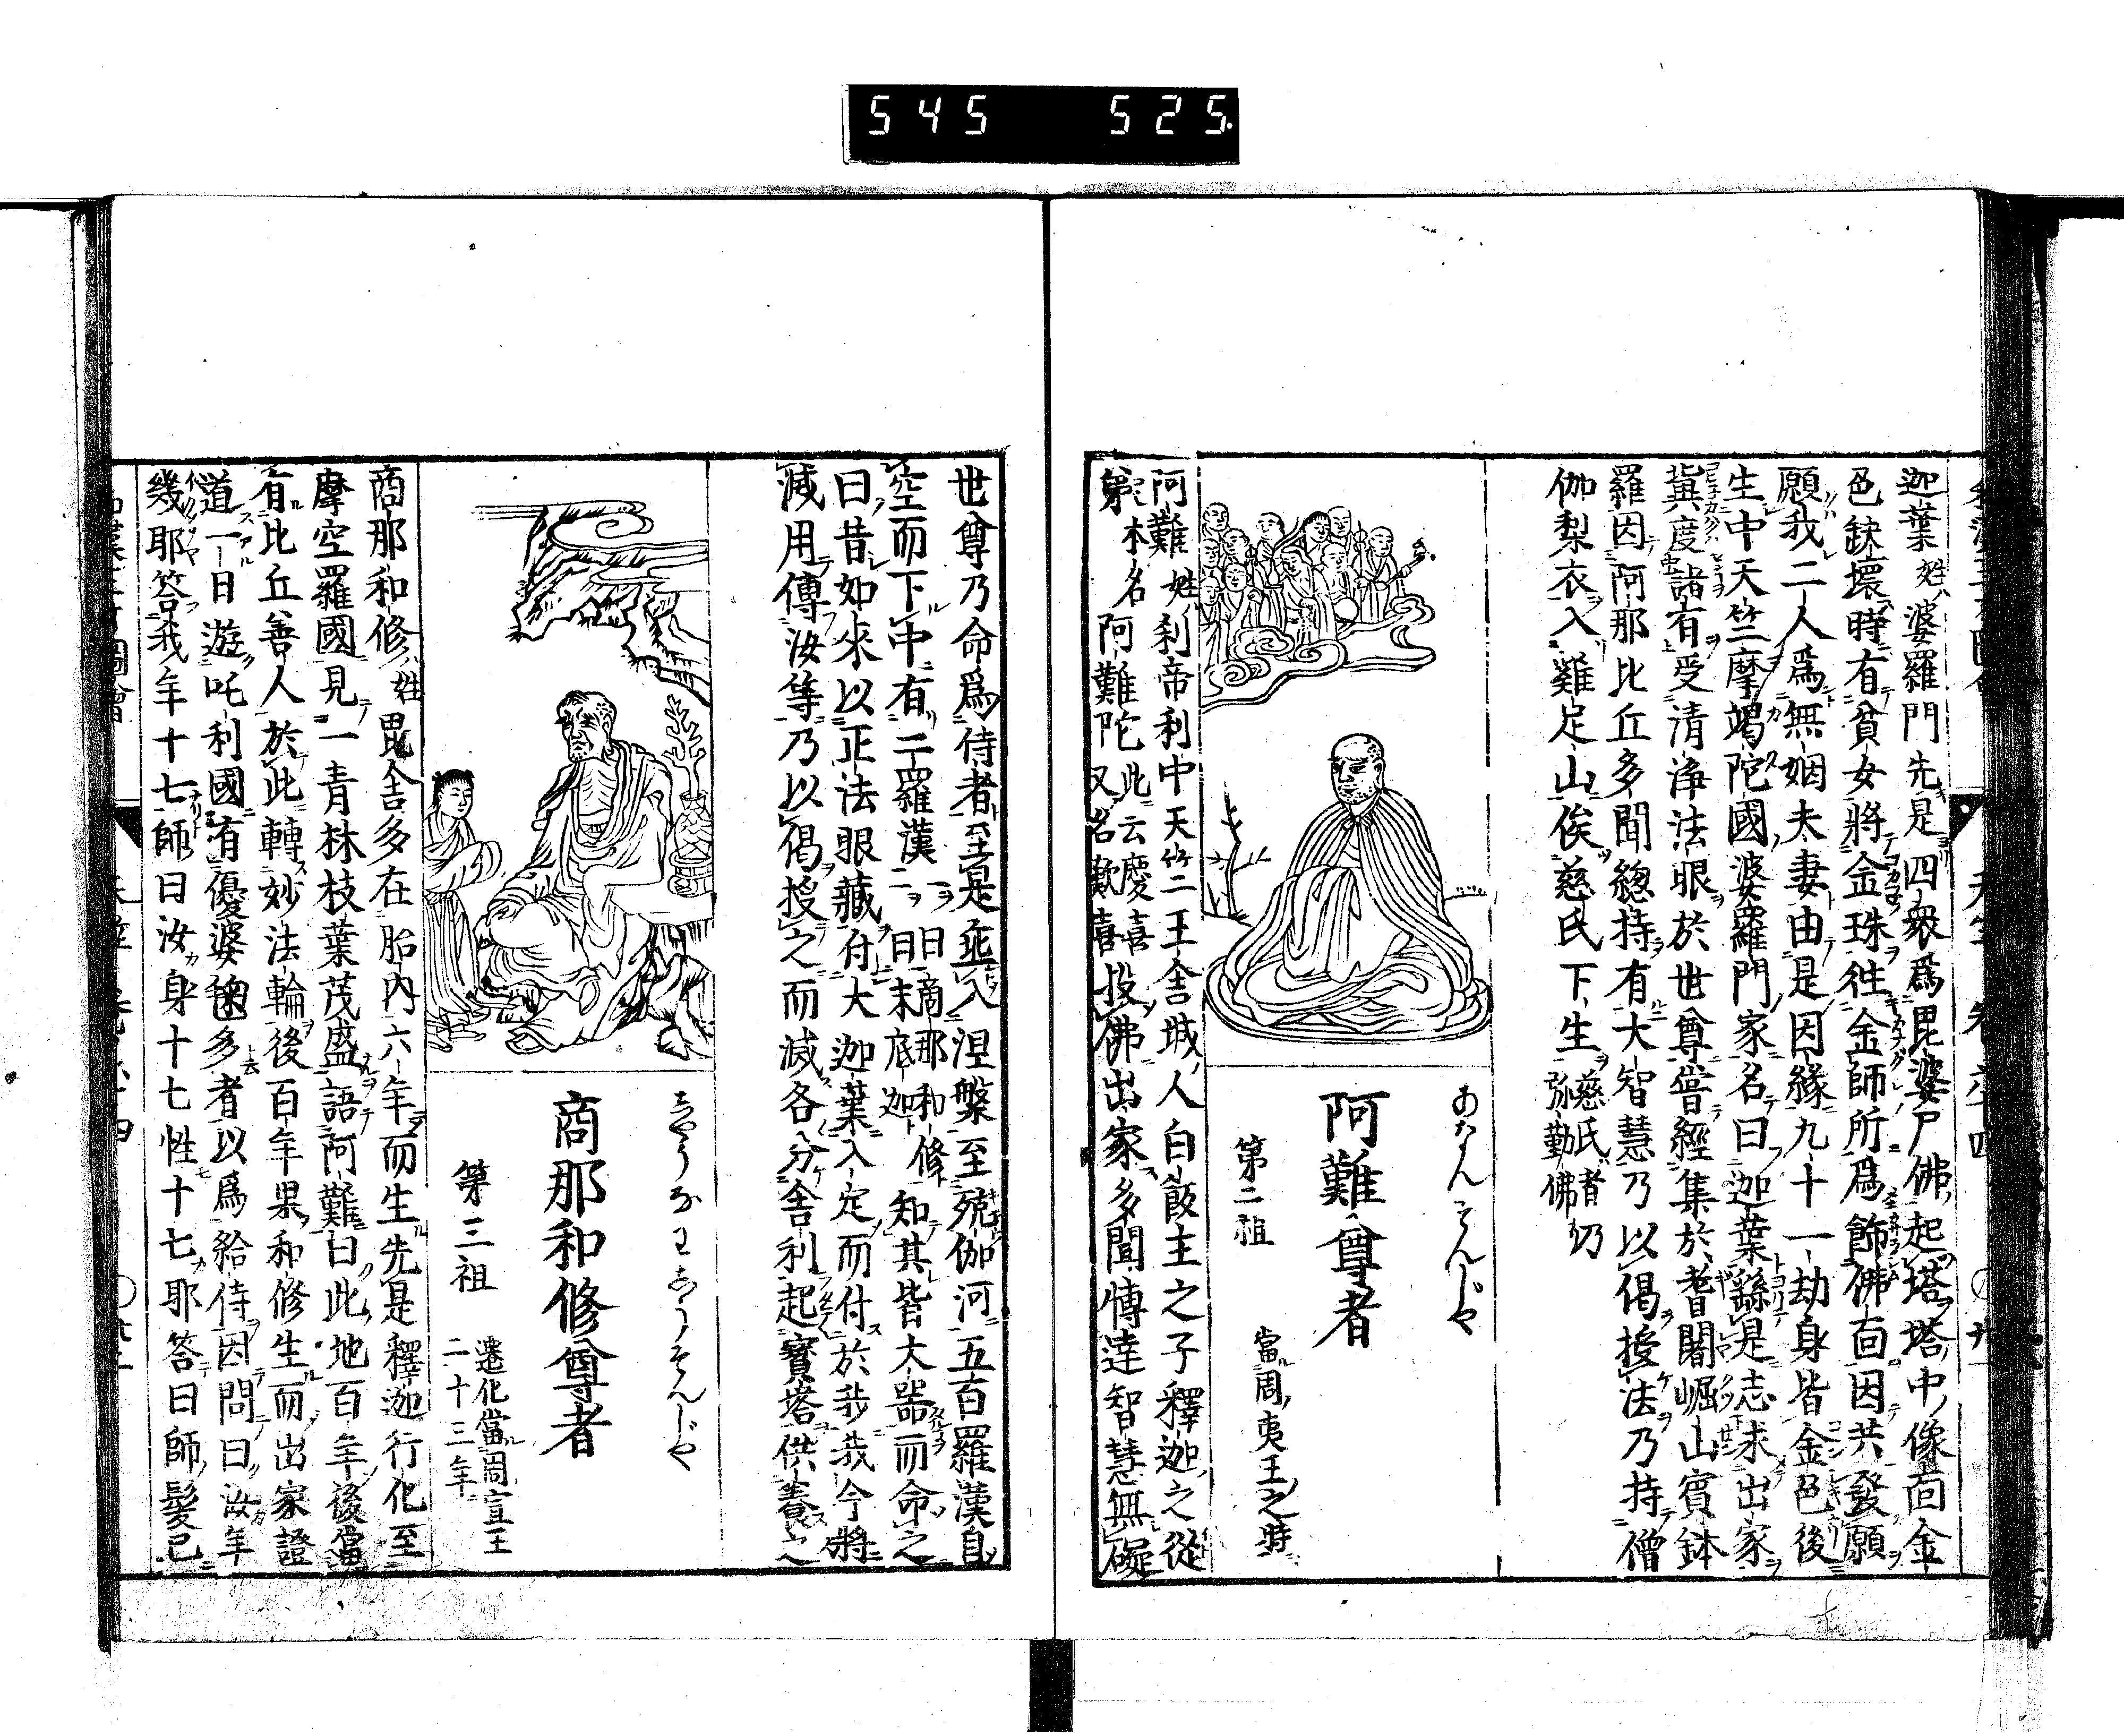 545 525
迦葉姓婆羅門先是四衆爲毘婆尸佛起塔塔中像面金
色缺壞時有貧女將金珠徃金師所爲飾佛面因共發願
願我二人爲無姻夫妻由是因緣九十一劫身皆金色後
生中天竺摩竭陀國婆羅門家名曰迦葉繇是志求出家
冀度諸有受清浄法眼於世尊嘗經集於耆闍崛山賓鉢
羅因阿那比丘多聞總持有大智慧乃以偈授法乃持僧
伽梨衣入雞足山俟慈氏下生
慈氏者乃
弥勒佛
あなんそんじや
阿難尊者
第二祖
當周夷王之時
阿難姓刹帝利中天竺二王舎城人白飯主之子釋迦之從
弟本名阿難陀此云慶喜又名歡喜投佛出家多聞愽達智慧無礙
世尊乃命爲侍者至是乖入涅槃至殑伽河五百羅漢自
空而下中有二羅漢
一曰商那和修
二曰末底迦
知其皆大器而命之
曰昔如來以正法眼藏付大迦葉入定而付於我我今將
滅用傳汝等乃以偈授之而滅各分舎利起寶塔供養之
志やうなわ志うそんじや
商那和修尊者
第三祖
遷化當周宣王
二十三年
商那和修姓毘舎多在胎内六年而生先是釋迦行化至
摩空羅國見一青林枝葉茂盛語阿難曰此地百年後當
有比丘善人於此轉妙法輪後百年果和修生而出家證
道一日遊吒利國有優婆毱多者以爲給侍因問曰汝年
幾耶答我年十七師曰汝身十七性十七耶答曰師髮已